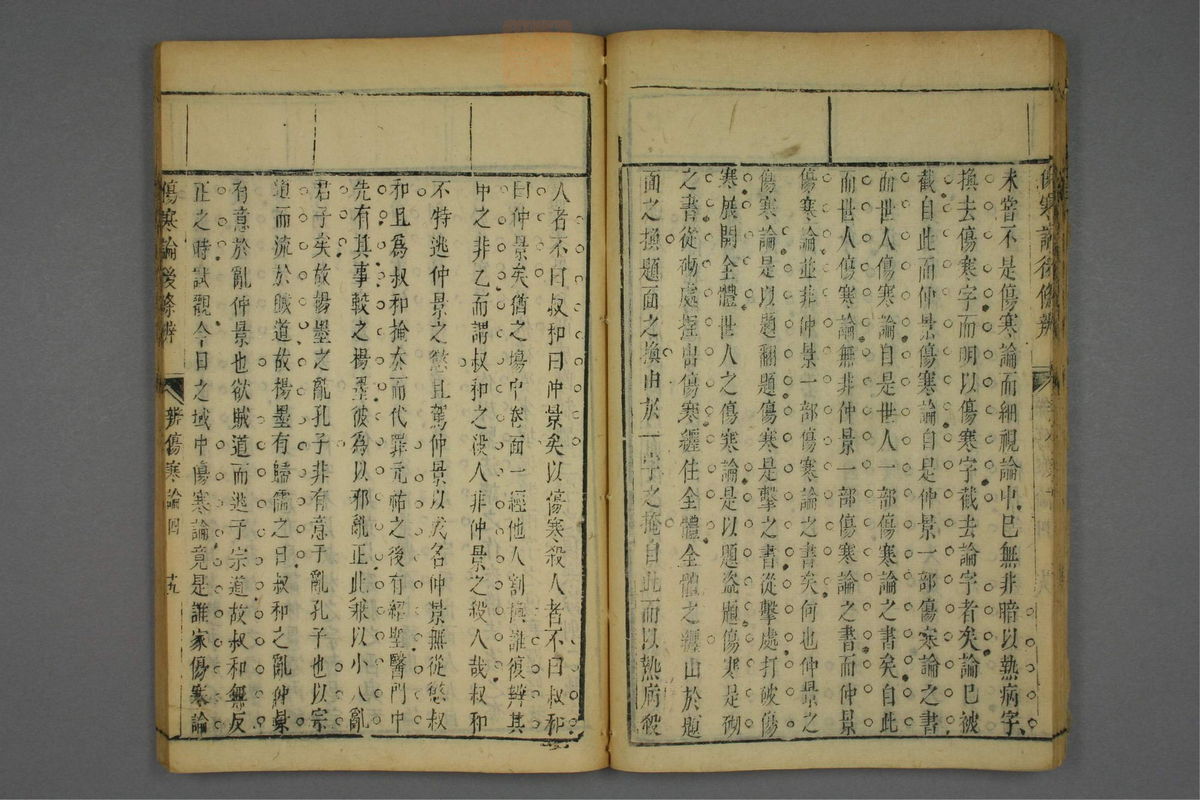 傷寒論後條辨
未嘗不是傷寒論而細視論中已無非暗以熱病字
換去傷寒字而明以傷寒字截去論字者矣論已被
截自此而仲景傷寒論自是仲景一部傷寒論之書
而世人傷寒論自是世人一部傷寒論之書矣自此
而世人傷寒論無非仲景一部傷寒論之書而仲景
傷寒論並非仲景一部傷寒論之書矣何也仲景之
傷寒論是以題翻題傷寒是擊之書從擊處打破傷
寒展開全體世人之傷寒論是以題盗題傷寒是砌
之書從砌處握出傷寒纒住全體全體之纒由於題
面之換題面之換由於一字之掩自此而以熱病殺
人者不曰叔和曰仲景矣以傷寒殺人者不曰叔和
曰仲景矣猶之場中卷面一經他人割換誰復辨其
甲之非乙而謂叔和之殺人非仲景之殺人哉叔和
不特逃仲景之愆且駕仲景以美名仲景無從愆叔
和且爲叔和掩衣而代罪元祐之後有紹聖醫門中
先有其事較之楊墨彼為以邪亂正此乘以小人亂
君子矣故楊墨之亂孔子非有意于亂孔子也以宗
道而流於賊道故楊墨有歸儒之日叔和之亂仲景
有意於亂仲景也欲賊道而逃于宗道故叔和無反
正之時試觀今日之域中傷寒論竟是誰家傷寒論
傷寒論後條辨 辨傷寒論四 十九